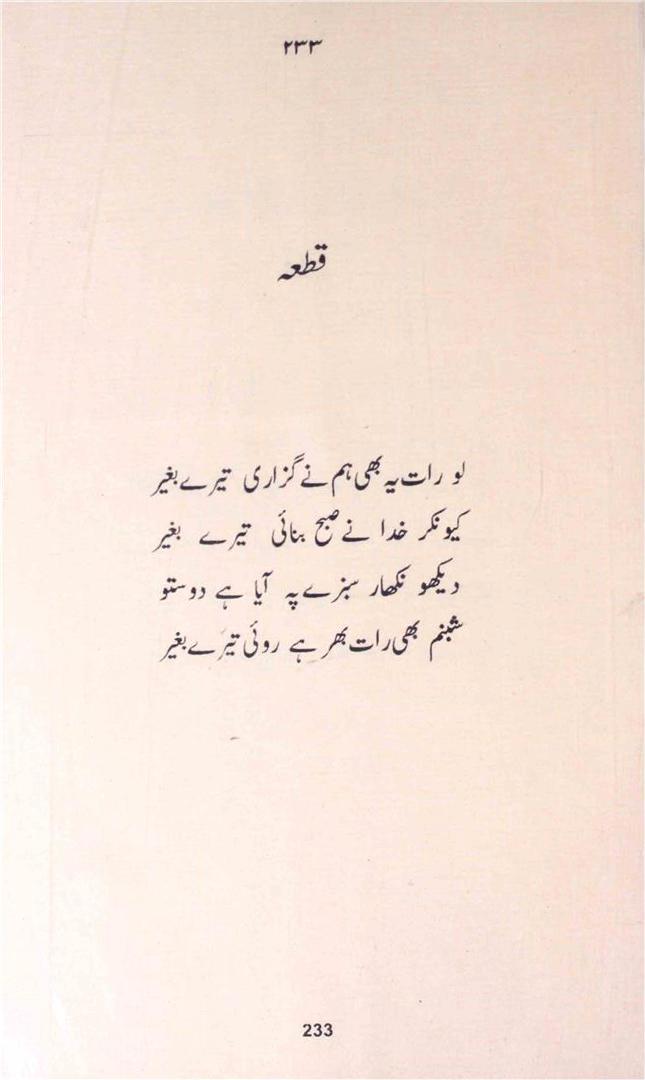 ۲۳۳
قطعہ
لو رات یہ بھی ہم نے گزاری تیرے بغیر
کیونکر خدا نے صبح بنائی تیرے بغیر
دیکھو نکھار سبزے پہ آیا ہے دوستو
شبنم بھی رات بھر ہے روئی تیرے بغیر
233